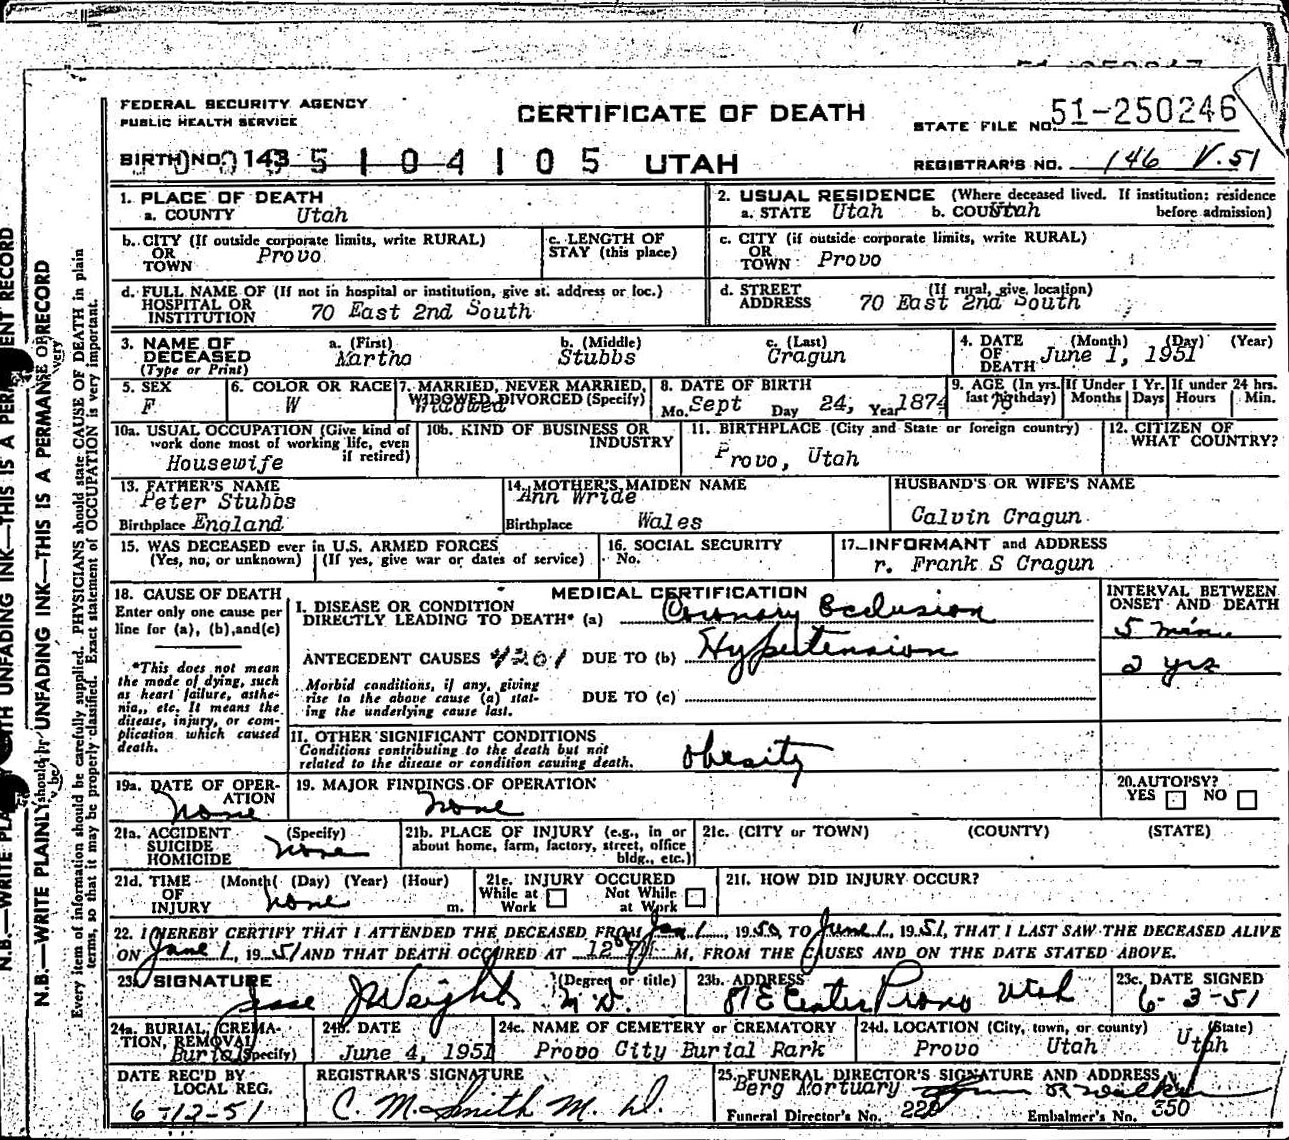 FEDERAL SECURITY AGENCY
PUBLIC HEALTH SERVICE
CERTIFICATE OF DEATH
STATE FILE NO. 51-250246
BIRTH NO. 143
UTAH
REGISTRAR'S NO. 146 V.51
1. PLACE OF DEATH
a. COUNTY Utah
2. USUAL RESIDENCE (Where deceased lived. If institution; residence before admission)
a. STATE Utah b. COUNTY Utah
b. CITY (If outside corporate limits, write RURAL) OR TOWN Provo
c. LENGTH OF STAY (this place)
c. CITY (if outside corporate limits, write RURAL) OR TOWN Provo
d. FULL NAME OF (If not in hospital or institution, give st. address or loc.) HOSPITAL OR INSTITUTION 70 East 2nd South
d. STREET ADDRESS (If rural, give location) 70 East 2nd South
3. NAME OF DECEASED (Type or Print)
a. (First) Martha
b. (Middle) Stubbs
c. (Last) Cragun
4. DATE OF DEATH (Month) (Day) (Year) June 1, 1951
5. SEX F
6. COLOR OR RACE W
7. MARRIED, NEVER MARRIED, WIDOWED DIVORCED (Specify) Widowed
8. DATE OF BIRTH Mo. Sept Day 24, Year 1874
9. AGE (In yrs. last birthday) 76
If Under 1 Yr. Months Days
If under 24 hrs. Hours Min.
10a. USUAL OCCUPATION (Give kind of work done most of working life, even if retired) Housewife
10b. KIND OF BUSINESS OR INDUSTRY
11. BIRTHPLACE (City and State or foreign country) Provo, Utah
12. CITIZEN OF WHAT COUNTRY?
13. FATHER'S NAME Peter Stubbs
Birthplace England
14. MOTHER'S MAIDEN NAME Ann Wride
Birthplace Wales
HUSBAND'S OR WIFE'S NAME
Calvin Cragun
15. WAS DECEASED ever in U.S. ARMED FORCES (Yes, no, or unknown) (If yes, give war or dates of service)
16. SOCIAL SECURITY No.
17. INFORMANT and ADDRESS
r. Frank S Cragun
18. CAUSE OF DEATH
Enter only one cause per line for (a), (b), and (c)
*This does not mean the mode of dying, such as heart failure, asthenia, etc. It means the disease, injury, or complication which caused death.
MEDICAL CERTIFICATION
I. DISEASE OR CONDITION DIRECTLY LEADING TO DEATH* (a) Coronary Occlusion
ANTECEDENT CAUSES 4201 DUE TO (b) Hypertension
Morbid conditions, if any, giving rise to the above cause (a) stating the underlying cause last.
DUE TO (c)
INTERVAL BETWEEN ONSET AND DEATH
5 min.
2 yrs
II. OTHER SIGNIFICANT CONDITIONS
Conditions contributing to the death but not related to the disease or condition causing death.
obesity
19a. DATE OF OPERATION None
19. MAJOR FINDINGS OF OPERATION None
20. AUTOPSY? YES NO
21a. ACCIDENT SUICIDE HOMICIDE (Specify) None
21b. PLACE OF INJURY (e.g., in or about home, farm, factory, street, office bldg., etc.)
21c. (CITY or TOWN) (COUNTY) (STATE)
21d. TIME OF INJURY (Month) (Day) (Year) (Hour) m. none
21e. INJURY OCCURED While at Work Not While at Work
21f. HOW DID INJURY OCCUR?
22. I HEREBY CERTIFY THAT I ATTENDED THE DECEASED FROM Jan 1, 1950, TO June 1, 1951, THAT I LAST SAW THE DECEASED ALIVE
ON June 1, 1951 AND THAT DEATH OCCURED AT 12 M, FROM THE CAUSES AND ON THE DATE STATED ABOVE.
23. SIGNATURE Jesse J Weight (Degree or title) M.D.
23b. ADDRESS 81 E Center Provo Utah
23c. DATE SIGNED 6-3-51
24a. BURIAL, CREMATION, REMOVAL (Specify) Burial
24b. DATE June 4, 1951
24c. NAME OF CEMETERY or CREMATORY Provo City Burial Park
24d. LOCATION (City, town, or county) (State) Provo Utah Utah
DATE REC'D BY LOCAL REG. 6-12-51
REGISTRAR'S SIGNATURE C. M. Smith M. D.
25. FUNERAL DIRECTOR'S SIGNATURE AND ADDRESS
Berg Mortuary
Funeral Director's No. 220 Embalmer's No. 350
N.B.—WRITE PLAINLY WITH UNFADING INK—THIS IS A PERMANENT RECORD
Every item of information should be carefully supplied. PHYSICIANS should state CAUSE OF DEATH in plain
terms, so that it may be properly classified. Exact statement of OCCUPATION is very important.